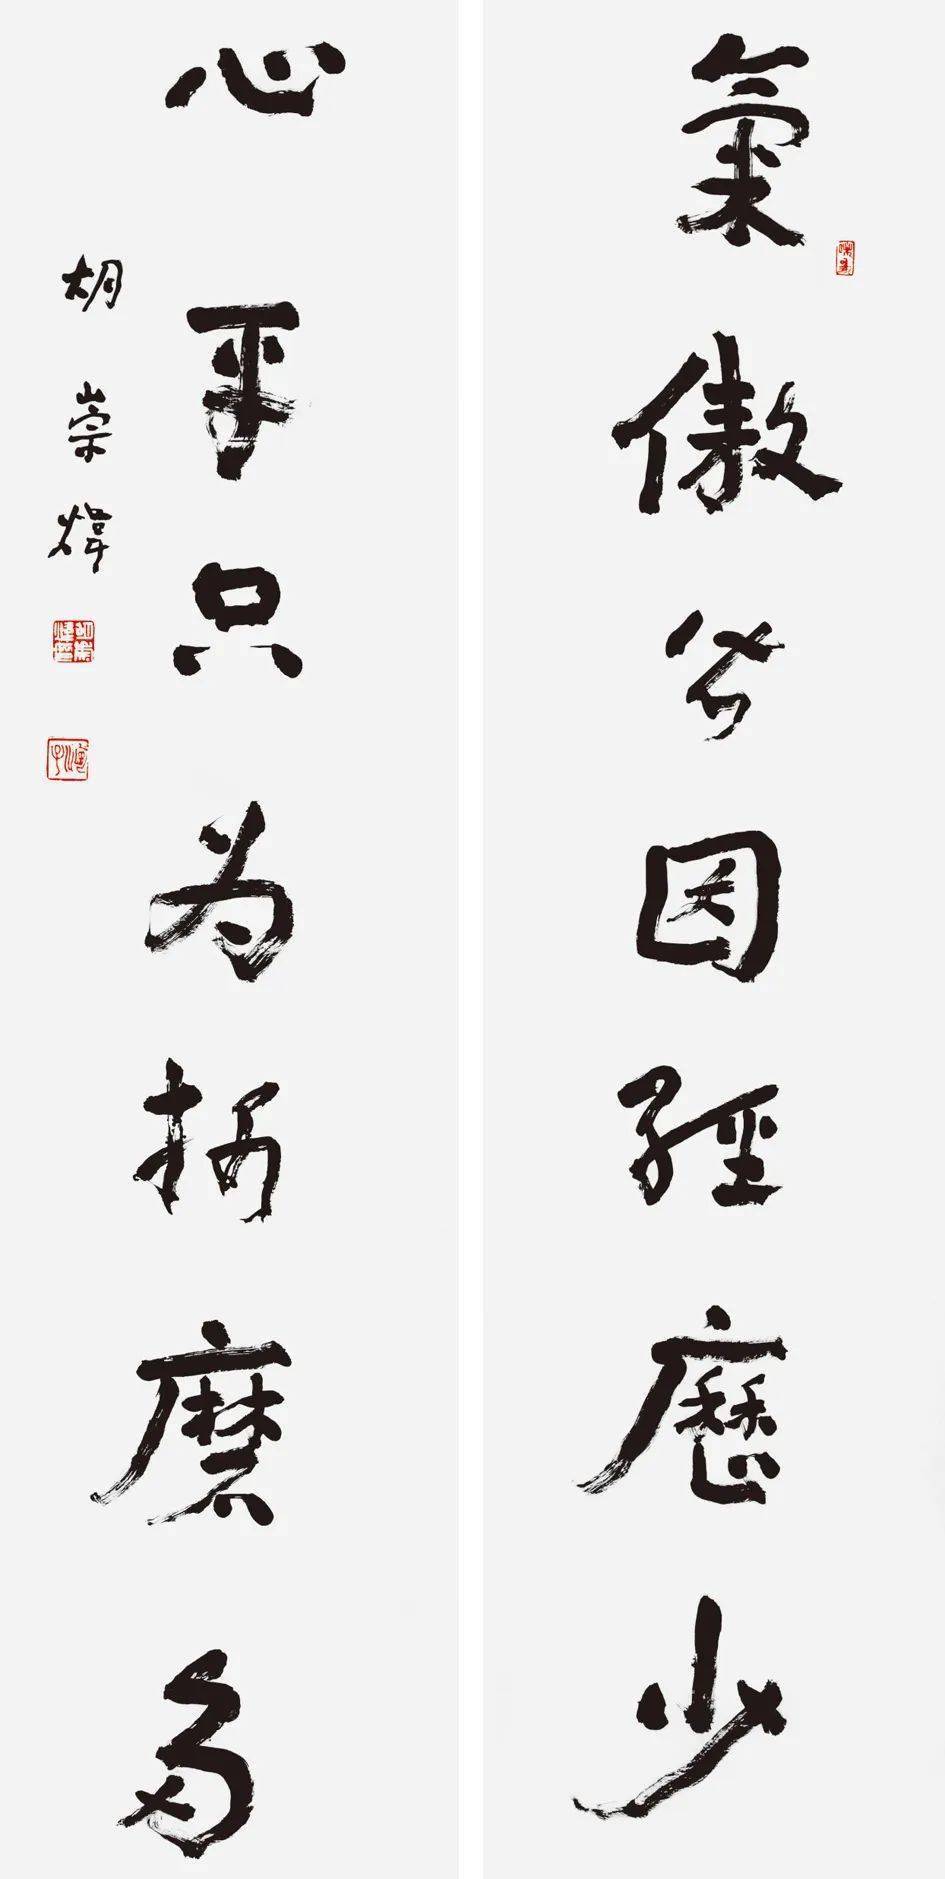 氣傲皆因經歷少
心平只为折磨多
胡崇煒